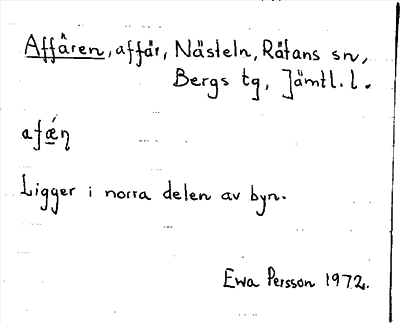 Affären, affär, Nästeln, Rätans sn,
Bergs tg, Jämtl. l.
afǽη
Ligger i norra delen av byn.
Ewa Persson 1972.